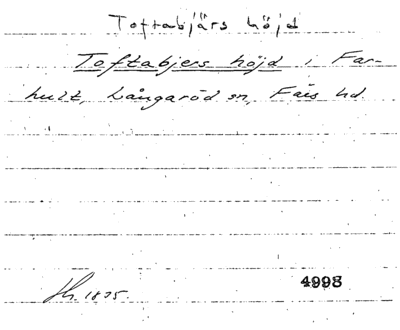 Toftabjärs höjd
Toftabjers höjd i Far-
hult, Långaröd sn, Färs hd.
1895.
4998